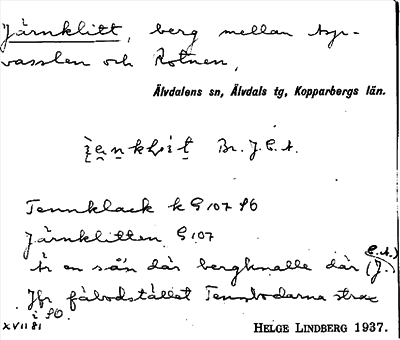 Järnklitt, berg mellan Syr-
vasslen och Rotnen,
Älvdalens sn, Älvdals tg, Kopparbergs län.
Br. J. E. A.
Tennklack k G 107 SO
Järnklitten G 107
Är en sån där bergknalle där (J. E. A.)
Jfr fäbodstället Tennbodarna strax
i SO.
XVII 81
HELGE LINDBERG 1937.